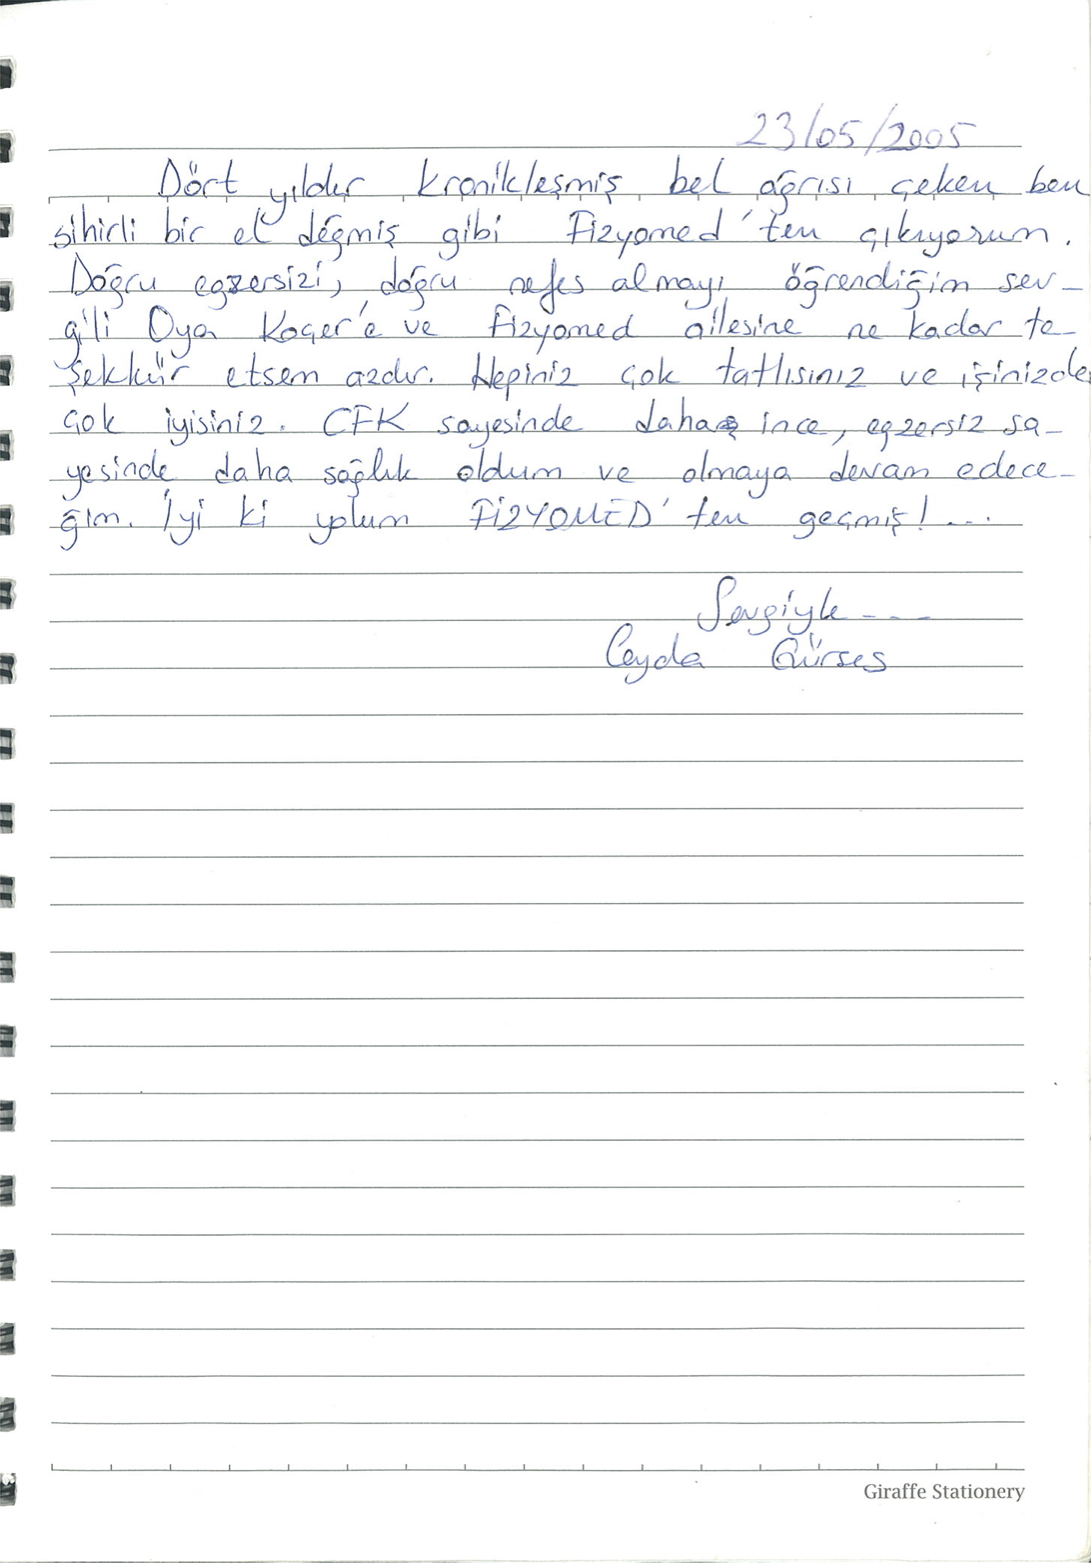 23/05/2005
Dört yıldır kronikleşmiş bel ağrısı çeken ben
sihirli bir el değmiş gibi Fizyomed'ten çıkıyorum.
Doğru egzersizi, doğru nefes almayı öğrendiğim sev-
gili Oya Koçer'e ve Fizyomed ailesine ne kadar te-
şekkür etsem azdır. Hepiniz çok tatlısınız ve işinizde
çok iyisiniz. CFK sayesinde daha ince, egzersiz sa-
yesinde daha sağlık oldum ve olmaya devam edece-
ğim. İyi ki yolum FİZYOMED'ten geçmiş!...
Sevgiyle ---
Ceyda Gürses
Giraffe Stationery